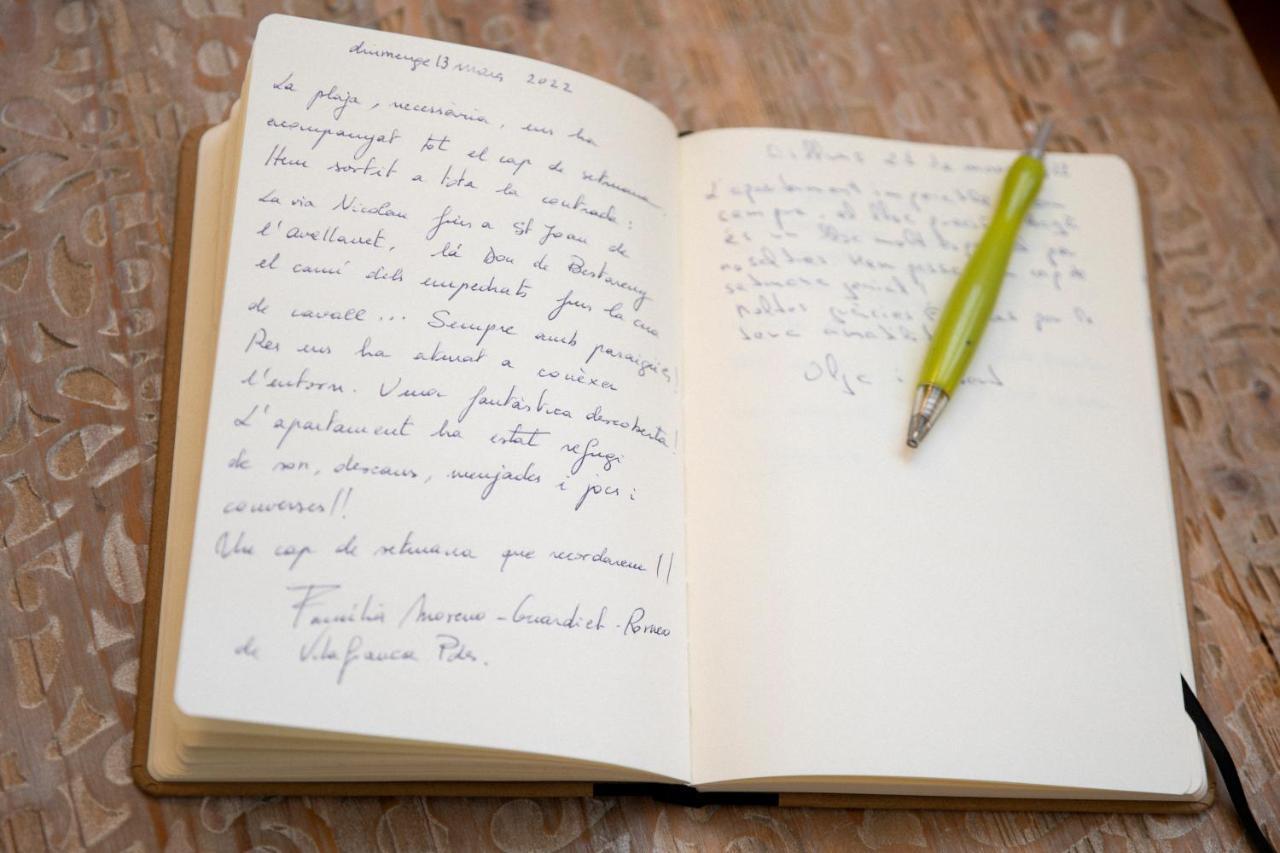 diumenge 13 març 2022
La pluja, necessària, ens ha
acompanyat tot el cap de setmana.
Hem sortit a tota la contrada:
La via Nicolau fins a St Joan de
l'avellanet, la Dou de Bastareny
el camí dels empedrats fins la cua
de cavall... Sempre amb paraigües!
Res ens ha aturat a conèxer
l'entorn. Una fantàstica descoberta!
L'apartament ha estat refugi
de son, descans, menjades i jocs i
converses!!
Un cap de setmana que recordarem!!
Família Moreno-Guardiet-Romeo
de Vilafranca Pdes.
Dilluns 28 de
L'apartament impecable
campa, el lloc preciós
és un lloc molt
nosaltres. Hem passat cap de
setmana genial!
Moltes gràcies per la
seva
Olga i